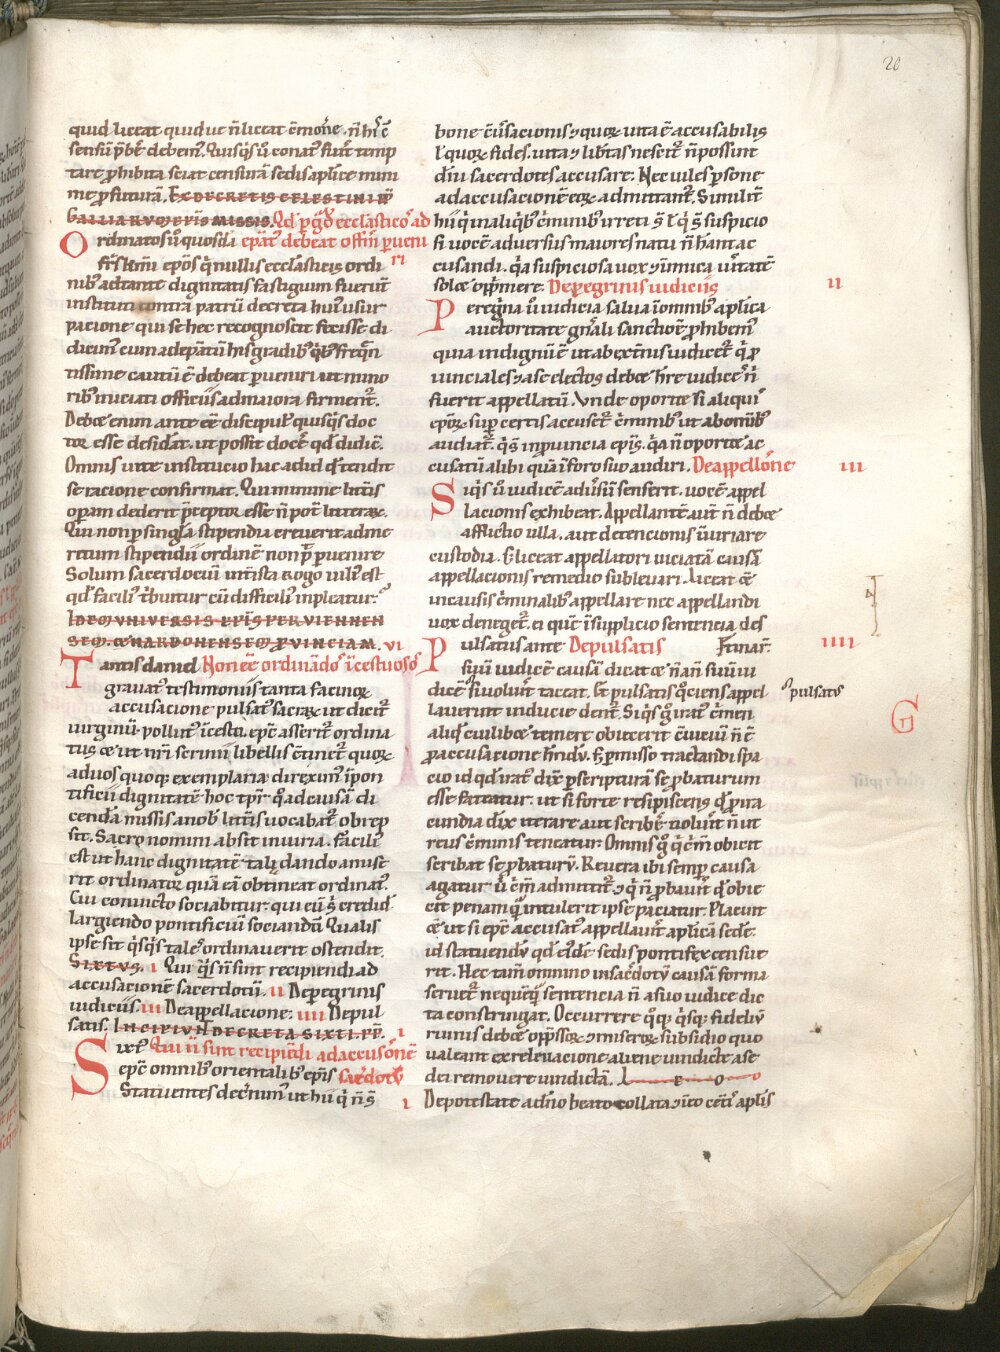 20
quid liceat quid ue ñ liceat cō̄monē. ñ hr̄e
sensū p̄bē debem᷒. Quisq̇s ū conat᷒ fuīt temp
tare ꝓhibita sciat censurā sedis ap̄lice mini
me ꝓfuturā. EX DECRETIS CELESTINI PP̄
GALLIARVM EPĪS MISSIS. Qd̄ p gͣd᷒ ecclasticos ad
Ordinatos ū quosdā epāt᷒ debeat offm̄ pueni
ri
fr̄s km̄i epōs q̇ nullis ecclasticis ordi
nib᷒ ad tantę dignitatis fastigium fuerūt
instituti contra patrū decreta hui᷒ usur
pacione qui se hec recognoscit fecisse di
dicim᷒ cum adepatū his gradib᷒ q̇b᷒ freq̄n
tissime cautū ē debeat pueniri ut mino
rib᷒ iniciati officiis ad maiora firment᷒.
Debꝫ enim ante cē discipul᷒ quisq̇s doc
tor esse desidāt. ut possit docē qd̄ didic̄.
Omnis uitę institucio hac ad id qd̄ tendit
se racione confirmat. Qui minime litt̄is
opam dederit p̄ceptor esse ñ pot̄ litterarꝫ.
Qui non p singla stipendia creuerit ad eme
ritum stipendii ordinē non p̄ puenire
Solum sacerdociū int̄ ista rogo uili᷒ est
qd̄ facili᷒ tͥbuitur cū difficili᷒ inpleatur.
IDEM VNIVERSIS EPĪS PER VIENNEN
SEM. ET NARBONENSEM PROVINCIAM. VI
Tantis daniel Non eē ordinandos īcestuosos
grauat᷒ testimoniis tanta facinorꝫ
accusacione pulsat᷒ sacrarꝫ ut dicit᷒
uirginū pollut᷒ īcesta. epc̄ asserit᷒ ordina
tus ꝫ ut nr̄i scrinii libellis ctinet᷒ quorꝫ
ad uos quoqꝫ exemplaria direxim᷒ ī pon
tificii dignitatē hoc tpr̄ qͦ ad causā di
cendā missis a nob᷒ litt̄is uocabat᷒ obrep
sit. Sacro nomini absit iniuria. facili᷒
est ut hanc dignitatē tali dando amise
rit ordinator quā eā obtineat ordinat᷒.
Cui conuicto sociabitur qui eū s̄ credid᷒
largiendo pontificiū sociandū. Qualis
ipse sit q̇sq̇s tales ordinauerit ostendit.
SIXTVS. I Qui q̇s ñ sint recipiendi ad
accusacionē sacerdotū. II De peregrinis
iudiciis. III De appellacione: IIII De pul
satis. INCIPIVNT DECRETA SIXTI PP̄. I
Sixt᷒ Qui ñ sint recipiēdi ad accusonē
epc̄ omnib᷒ orientalib᷒ epīs sacerdotū
Statuentes decnim᷒ ut hii q̇ ñ s̄ I
bonę cūsacionis ꝫ quorꝫ uita ē accusabilis
l᷒ quorꝫ fides. uita ꝫ lib̄tas nescit᷒ ñ possint
dn̄i sacerdotes accusare. Nec uiles psone
ad accusacionē eorꝫ admittant᷒. Similit̄
hii q̇ in aliq̇b᷒ c̄minib᷒ irreti s̄ l᷒ q̇ s̄ suspicio
si uocē aduersus maiores natu ñ habant ac
cusandi. q̇a suspiciosa uox ꝫ inimica ūitatē
solꝫ opp̄mere. De peregrinis iudiciis II
Peregͥna ū iudicia salua ī omnib᷒ ap̄lica
auctoritate gn̄ali sanctioē ꝓhibem᷒
quia indignū ē ut ab ext̄nis iudicet᷒ q̇ ꝓ
uinciales ꝫ a se electos debꝫ hr̄e iudices ñ
fuerit appellatū. Vnde oportꝫ si aliqui᷒
epōrꝫ sup certis accuset᷒ c̄minib᷒ ut ab omib᷒
audiat᷒. q̇ s̄ in puincia epīs. q̇a ñ oportꝫ ac
cusatū alibi quā ī foro suo audiri. De appellōne III
Siq̇s ū iudicē aduīsū senserit. uocē appel
lacionis exhibeat. Appellantē aut̄ ñ debꝫ
afflictio ulla. aut detencionis iniuriare
custodia. Et liceat appellatori uiciatā causā
appellacionis remedio subleuari. Liceat ꝫ
in causis c̄minalib᷒ appellare nec appellandi
uox deneget᷒. ei quē ī supplicio sentencia des
Pulsatus ante De pulsatis Ftinar᷒. IIII
suū iudicē causā dicat ꝫ ñ añ suū iu
dicē si uoluīt taceat. Et pulsatis qͦciens appel
pulsatis
lauerint inducię dent᷒. Siq̇s g̊ irat᷒ c̄men
aliqd̄ cuilibꝫ temere obiecerit cūiciū ñ ē
ꝓ accusacione hn̄dū. Et pmisso tractandi spa
cio id qd̄ irat᷒ dix̄ p scripturā se pbaturum
esse fateatur. ut si forte resipiscens q̄ p ira
cundiā dix̄ iterare aut scribē noluīt ñ ut
reus c̄minis teneatur. Omnis g̊ q̇ c̄m̄ obicit
scribat se pbaturū. Reuera ibi semp causa
agatur ū c̄m̄ admittit᷒ ꝫ q̇ ñ pbauīt qd̄ obie
cit penam q̄ intulerit ipse paciatur. Placuit
ꝫ ut si epc̄ accusat᷒ appellauīt ap̄licā sedē.
id statuendū qd̄ ei᷒dē sedis pontifex censue
rit. Hec tam̄ omnino in sacdotū causā forma
seruet᷒ ne quēq̄ sentencia ñ a suo iudice dic
ta constringat. Occurrere qͦqꝫ q̇sqꝫ fideliū
rumis debꝫ opp̄ssorꝫ ꝫ miserorꝫ subsidio quo
ualeant ex releuacione alienę uindictę a se
dei remouere uindictā. L E O
De potestate a dn̄o beato collata ꝫ ito cet̄i ap̄lis
G